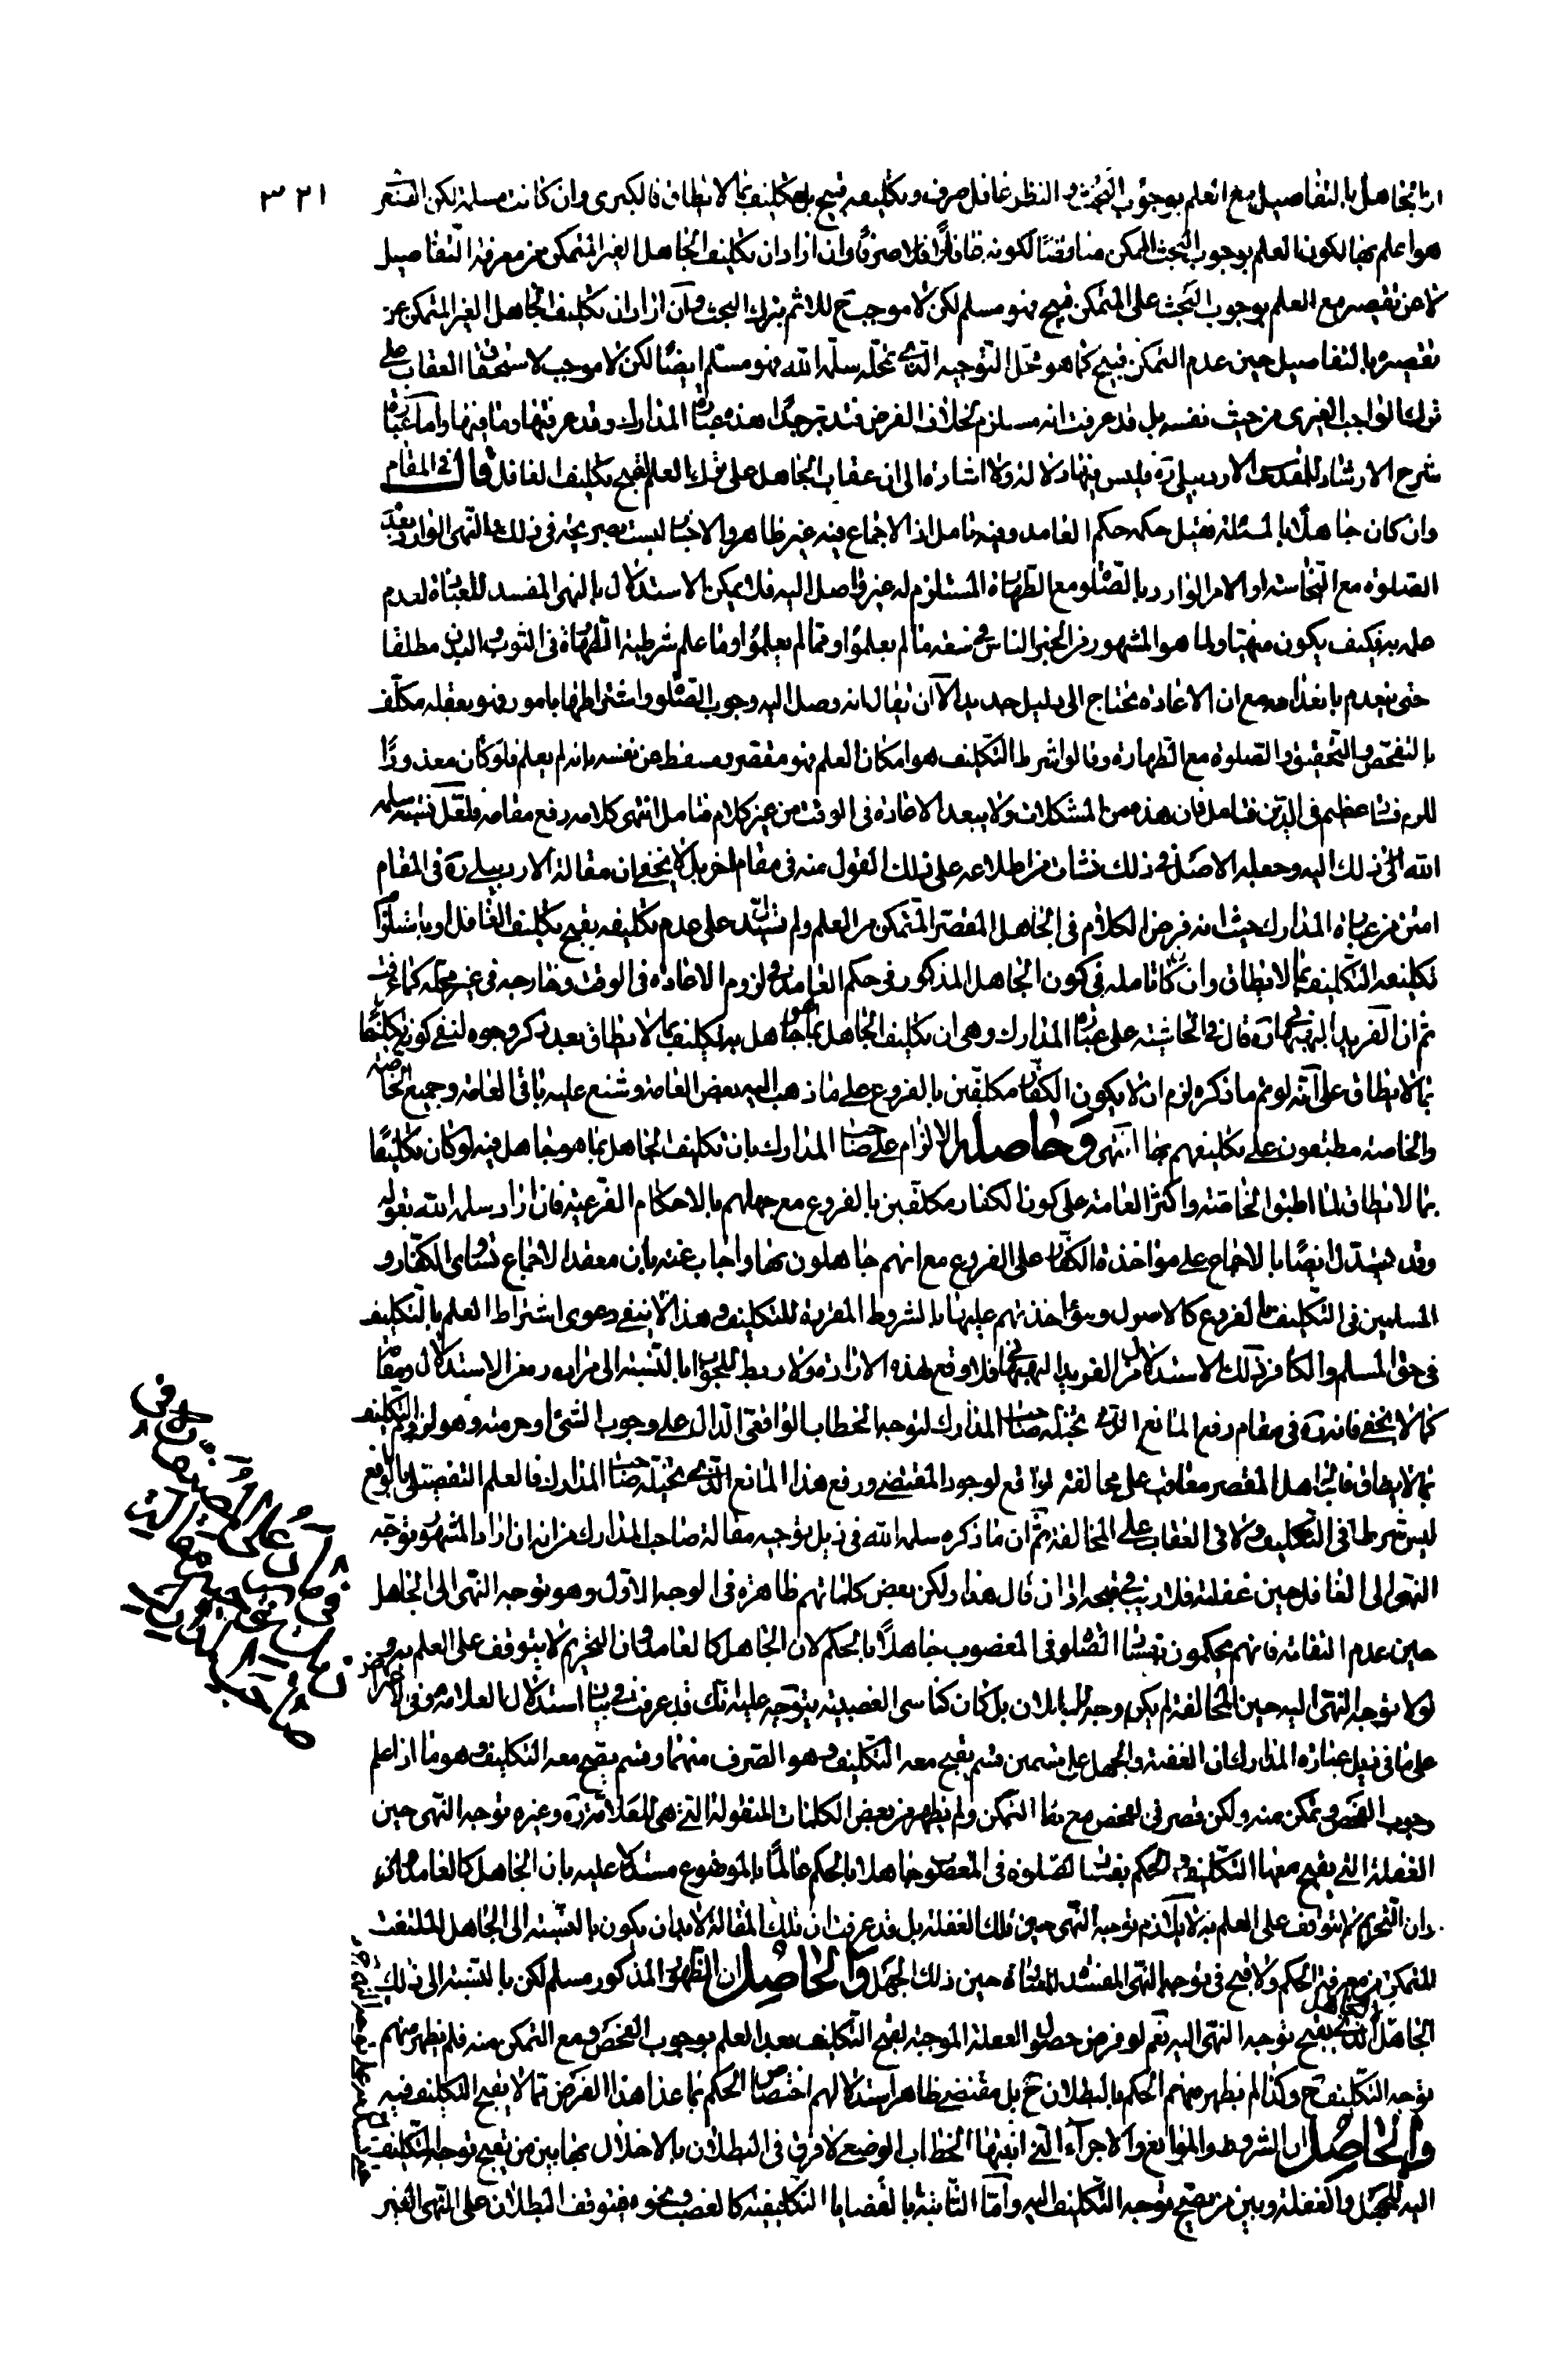 ٣٢١
ان الجاهل بالتفاصيل مع العلم بوجوب البحث و النظر غافل صرف و تكليفه قبيح بل تكليف بما لا يطاق فالكبرى وان كانت مسلمة لكن الصغرى
هو اعلم بها لكون العلم بوجوب البحث الممكن منافيا لكونه غافلا صرفا وان اراد ان تكليف الجاهل الغير المتمكن من معرفة التفاصيل
لا عن تقصير مع العلم بوجوب البحث على المتمكن قبيح فهو مسلم لكن لا موجب ح للاثم بترك البحث وان اراد ان تكليف الجاهل الغير المتمكن عن
تقصيره بالتفاصيل حين عدم التمكن قبيح كما هو محل التوجيه الذى تخله سلمه الله فهو مسلم ايضا لكن لا موجب لاستحقاق العقاب على
ترك الواجب الغيرى من حيث نفسه بل قد عرفت انه مستلزم لخلاف الفرض فتدبر جيدا هذه عبارة المدارك و قد عرفتها وما فيها واما عبارة
شرح الارشاد للمقدس الاردبيلى ره فليس فيها دلالة ولا اشارة الى ان عقاب الجاهل على ترك العلم لقبح تكليف الغافل قال فى المقام
وان كان جاهلا بالمسئلة فقيل حكمه حكم العامد وفيه تامل اذ الاجماع فيه غير ظاهر والاخبار ليست بصريحة فى ذلك والنهى الوارد بعد
الصلوة مع النجاسة او الامر الوارد بالصلوة مع الطهارة المستلزم له غير واصل اليه فلا يمكن الاستدلال بالنهى المفسد للعبادة لعدم
علمه به فكيف يكون منهيا ولما هو المشهور من الخبر الناس فى سعة ما لم يعلموا او مما لم يعلموا وما علم شرطية الطهارة فى الثوب والبدن مطلقا
حتى ينعدم بانعدامه مع ان الاعادة يحتاج الى دليل جديد الا ان يقال انه وصل اليه وجوب الصلوة واشتراطها بامور فهو بعقله مكلف
بالتفحص والتحقيق والصلوة مع الطهارة وقالوا شرط التكليف هو امكان العلم فهو مقصر ومسقط عن نفسه بانه لم يعلم فلو كان معذورا
للزم فساد عظيم فى الدين فتامل فان هذه من المشكلات ولا يبعد الاعادة فى الوقت من غير كلام فتامل انتهى كلامه رفع مقامه فلعل نسبته سلمه
الله الى ذلك اليه وجعله الاصل فى ذلك نشات من اطلاعه على ذلك القول منه فى مقام اخر بل لا يخفى ان مقالة الاردبيلى ره فى المقام
امتن من عبارة المدارك حيث انه فرض الكلام فى الجاهل المقصر المتمكن من العلم ولم يستدل على عدم تكليفه بقبح تكليف الغافل او باستلزام
تكليفه التكليف بما لا يطاق وان كان تامله فى كون الجاهل المذكور فى حكم العامد فى لزوم الاعادة فى الوقت وخارجه فى غير محله كما عرفت
ثم ان الفريد البهبهانى ره قال فى الحاشية على عبارة المدارك وهى ان تكليف الجاهل بما هو جاهل به تكليف بما لا يطاق بعد ذكر وجوه لنفى كونه تكليفا
بما لا يطاق على انه لو تم ما ذكره لزم ان لا يكون الكفار مكلفين بالفروع على ما ذهب اليه بعض العامة وشنع عليه باقى العامة وجميع الخاصة
والخاصة مطبقون على تكليفهم بها انتهى وحاصله الالزام على صاحب المدارك بان تكليف الجاهل بما هو جاهل فيه لو كان تكليفا
بما لا يطاق لما اطبق الخاصة واكثر العامة على كون الكفار مكلفين بالفروع مع جهلهم بالاحكام الفرعية فان اراد سلمه الله بقوله
وقد يستدل ايضا بالاجماع على مؤاخذة الكفار على الفروع مع انهم جاهلون بها واجاب عنه بان معقد الاجماع تساوى الكفار و
المسلمين فى التكليف بالفروع كالاصول ومؤاخذتهم عليها بالشروط المقررة للتكليف وهذا لا ينفى دعوى اشتراط العلم بالتكليف
فى حق المسلم والكافر ذلك الاستدلال من الفريد البهبهانى فلا وقع لهذه الارادة ولا ربط للجواب بالنسبة الى مراده ره من الاستدلال ومقامه
كما لا يخفى فانه ره فى مقام رفع المانع الذى تخيله صاحب المدارك لتوجه الخطاب الواقعى الدال على وجوب الشئ او حرمته وهو لزوم التكليف
بما لا يطاق فالجاهل المقصر معاقب على مخالفة الواقع لوجود المقتضى ورفع هذا المانع الذى تخيله صاحب المدارك فالعلم التفصيلى بالواقع
ليس شرطا فى التكليف ولا فى العقاب على المخالفة ثم ان ما ذكره سلمه الله فى ذيل توجيه مقالة صاحب المدارك من انه ان اراد المشهور توجه
النهى الى الغافل حين غفلته فلا ريب فى قبحه اذ ان قال هذا ولكن بعض كلماتهم ظاهرة فى الوجه الاول وهو توجه النهى الى الجاهل
حين عدم التفاته فانهم يحكمون بفساد الصلوة فى المغصوب جاهلا بالحكم لان الجاهل كالعامد وان التحريم لا يتوقف على العلم به و
لولا توجه النهى اليه حين المخالفة لم يكن وجه للبطلان بل كان كناسى الغصبية يتوجه عليه انك قد عرفت فى بيان استدلال العلامة
على ما فى ذيل عبارة المدارك ان الغفلة والجهل على قسمين قسم يقبح معه التكليف وهو الصرف منهما وقسم يصح معه التكليف وهو ما اذا علم
وجوب الفحص وتمكن منه ولكن قصر فى الفحص مع بقاء التمكن ولم يظهر من بعض الكلمات المنقولة التى هى للعلامة ره وغيره توجه النهى حين
الغفلة التى يقبح معها التكليف اذ الحكم بفساد الصلوة فى المغصوب جاهلا بالحكم عالما بالموضوع مستدلا عليه بان الجاهل كالعامد
وان التحريم لا يتوقف على العلم به لا يلازم توجه النهى حين تلك الغفلة بل قد عرفت ان تلك المقالة لا بد ان يكون بالنسبة الى الجاهل الملتفت
المتمكن من معرفة الحكم ولا قبح فى توجه النهى المفسد للعبادة حين ذلك الجهل والحاصل ان الظهور المذكور مسلم لكن بالنسبة الى ذلك
الجاهل لا الجاهل الذى يقبح توجه النهى اليه نعم لو فرض حصول الغفلة الموجبة لقبح التكليف بعد العلم بوجوب الفحص و مع التمكن منه فلم يظهر منهم
توجه التكليف ح وكذا لم يظهر منهم الحكم بالبطلان ح بل مقتضى ظاهر استدلالهم اختصاص الحكم بما عدا هذا الفرض مما لا يقبح التكليف فيه
والحاصل ان الشروط والموانع والاجزاء التى اثبتها الخطاب الوضعى لا فرق فى البطلان بالاخلال بها بين من يقبح توجه التكليف
اليه للجهل والغفلة وبين من يصح توجه التكليف اليه واما الثابتة بالقضايا التكليفية كالغصب ونحوه فيتوقف البطلان على النهى الغير